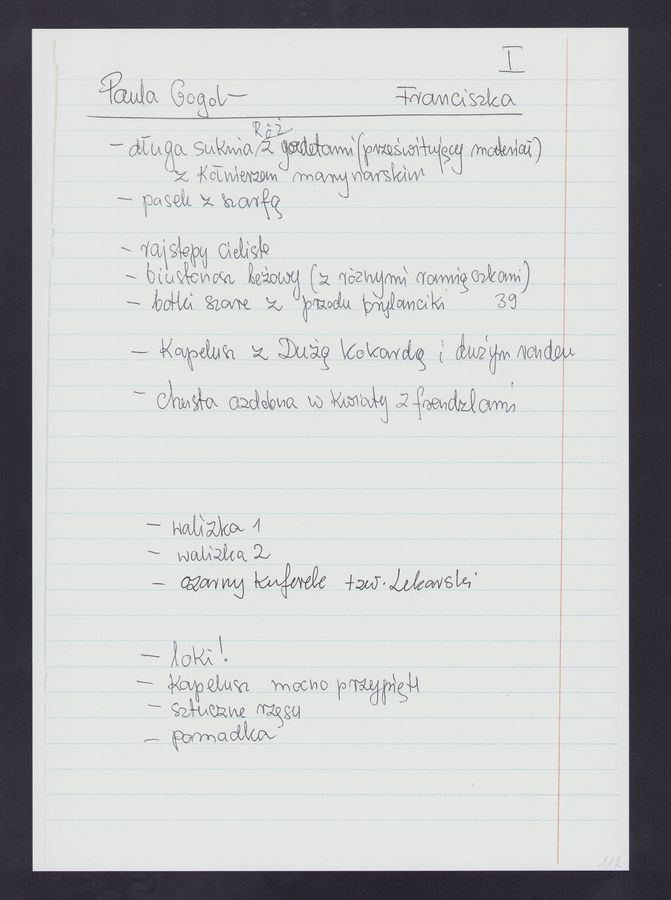 I
Paula Gogol – Franciszka
Róż
– długa suknia z godetami (prześwitujący materiał)
z kołnierzem marynarskim
– pasek z szarfą
– rajstopy cieliste
– biustonosz beżowy (z różnymi ramiączkami)
– botki szare z przodu brylanciki 39
– Kapelusz z Dużą Kokardą i dużym rondem
– chusta ozdobna w kwiaty z frendzlami
– walizka 1
– walizka 2
– czarny kuferek tzw. Lekarski
– loki!
– Kapelusz mocno przypięty
– sztuczne rzęsy
– pomadka
112